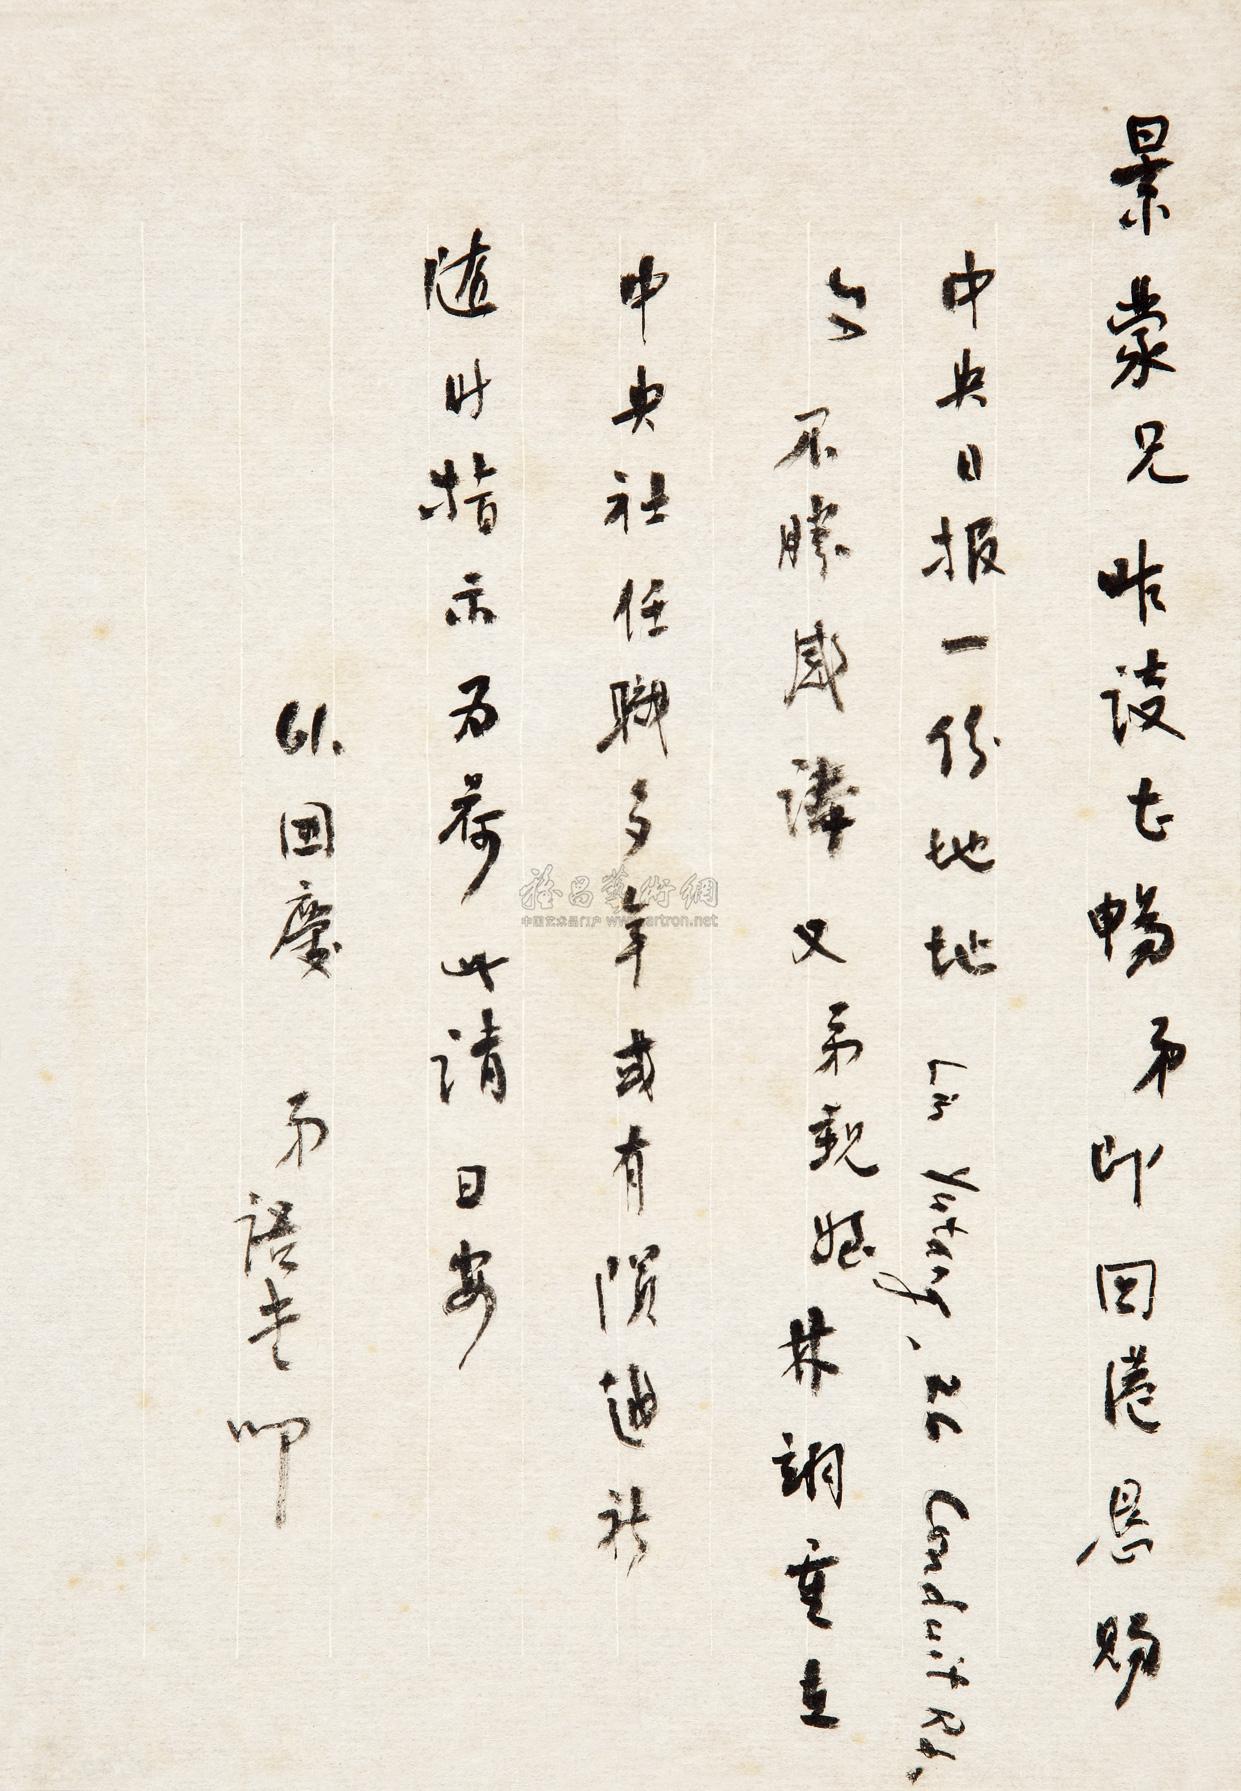 景蒙兄昨談甚暢弟即回港恳賜
中央日报一份地址 Lin Yutang, 26 Conduit Rd.
不勝感禱又弟親姪林調重在
中央社任職多年或有隕越祈
随时指示为荷此請日安
61. 国慶 弟語堂叩
雅昌藝術網
中国艺术品门户 www.artron.net